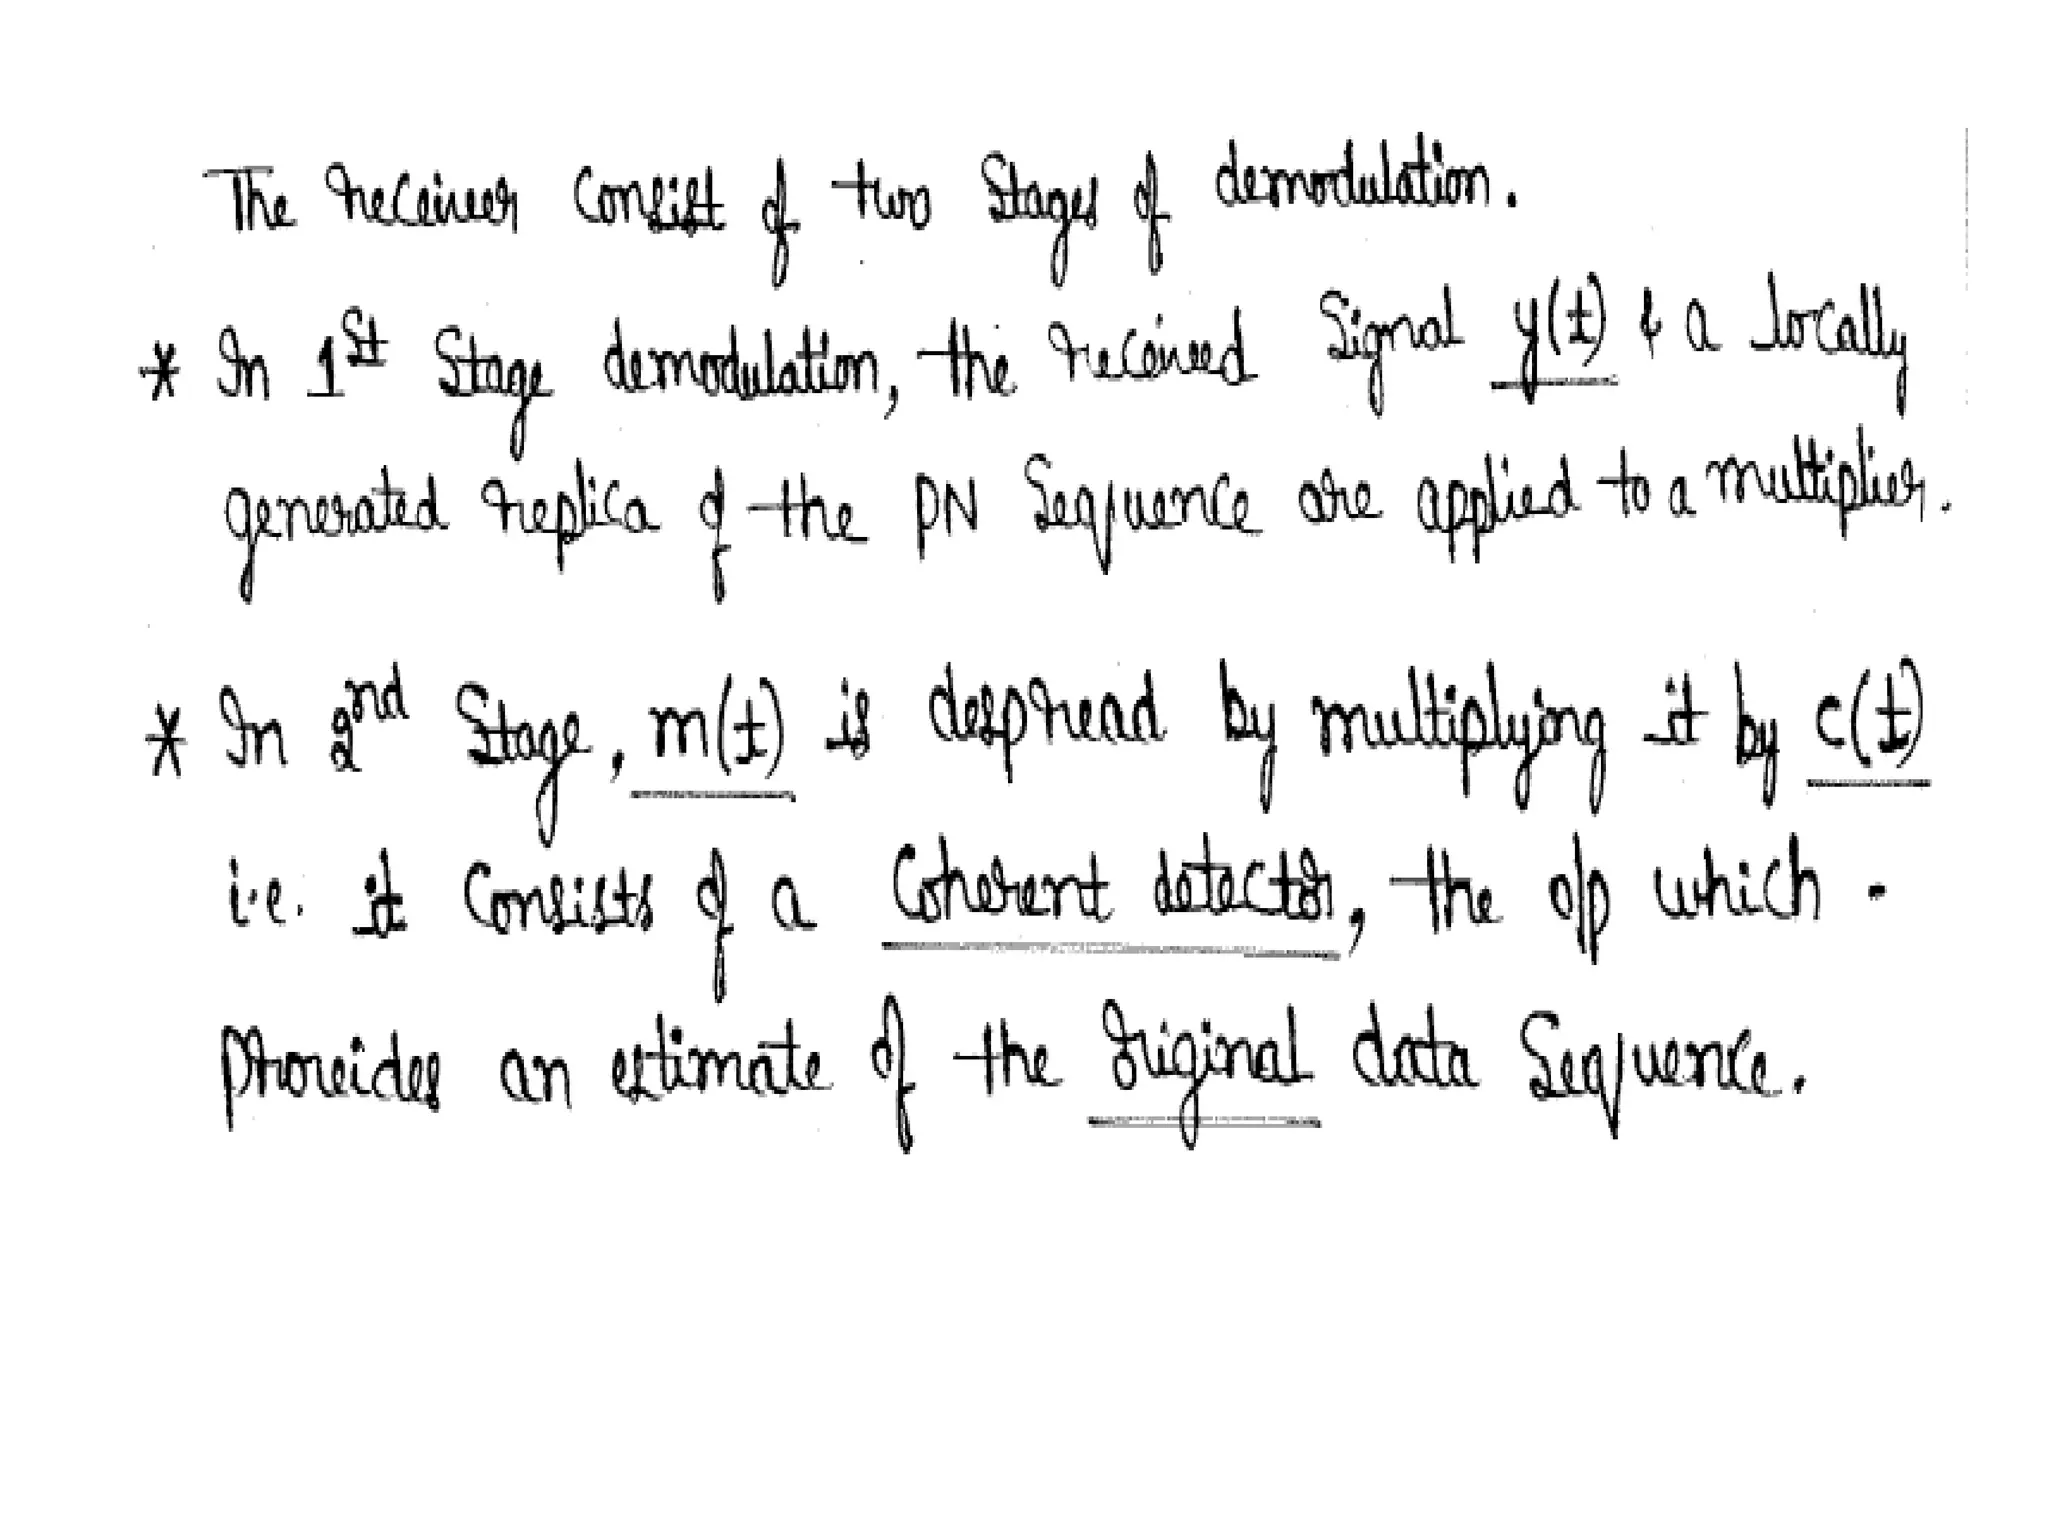 The receiver consist of two stages of demodulation.
* In 1st stage demodulation, the received signal y(t) & a locally
generated replica of the PN sequence are applied to a multiplier.
* In 2nd stage, m(t) is despread by multiplying it by c(t)
i.e. it consists of a coherent detector, the o/p which -
provides an estimate of the original data sequence.